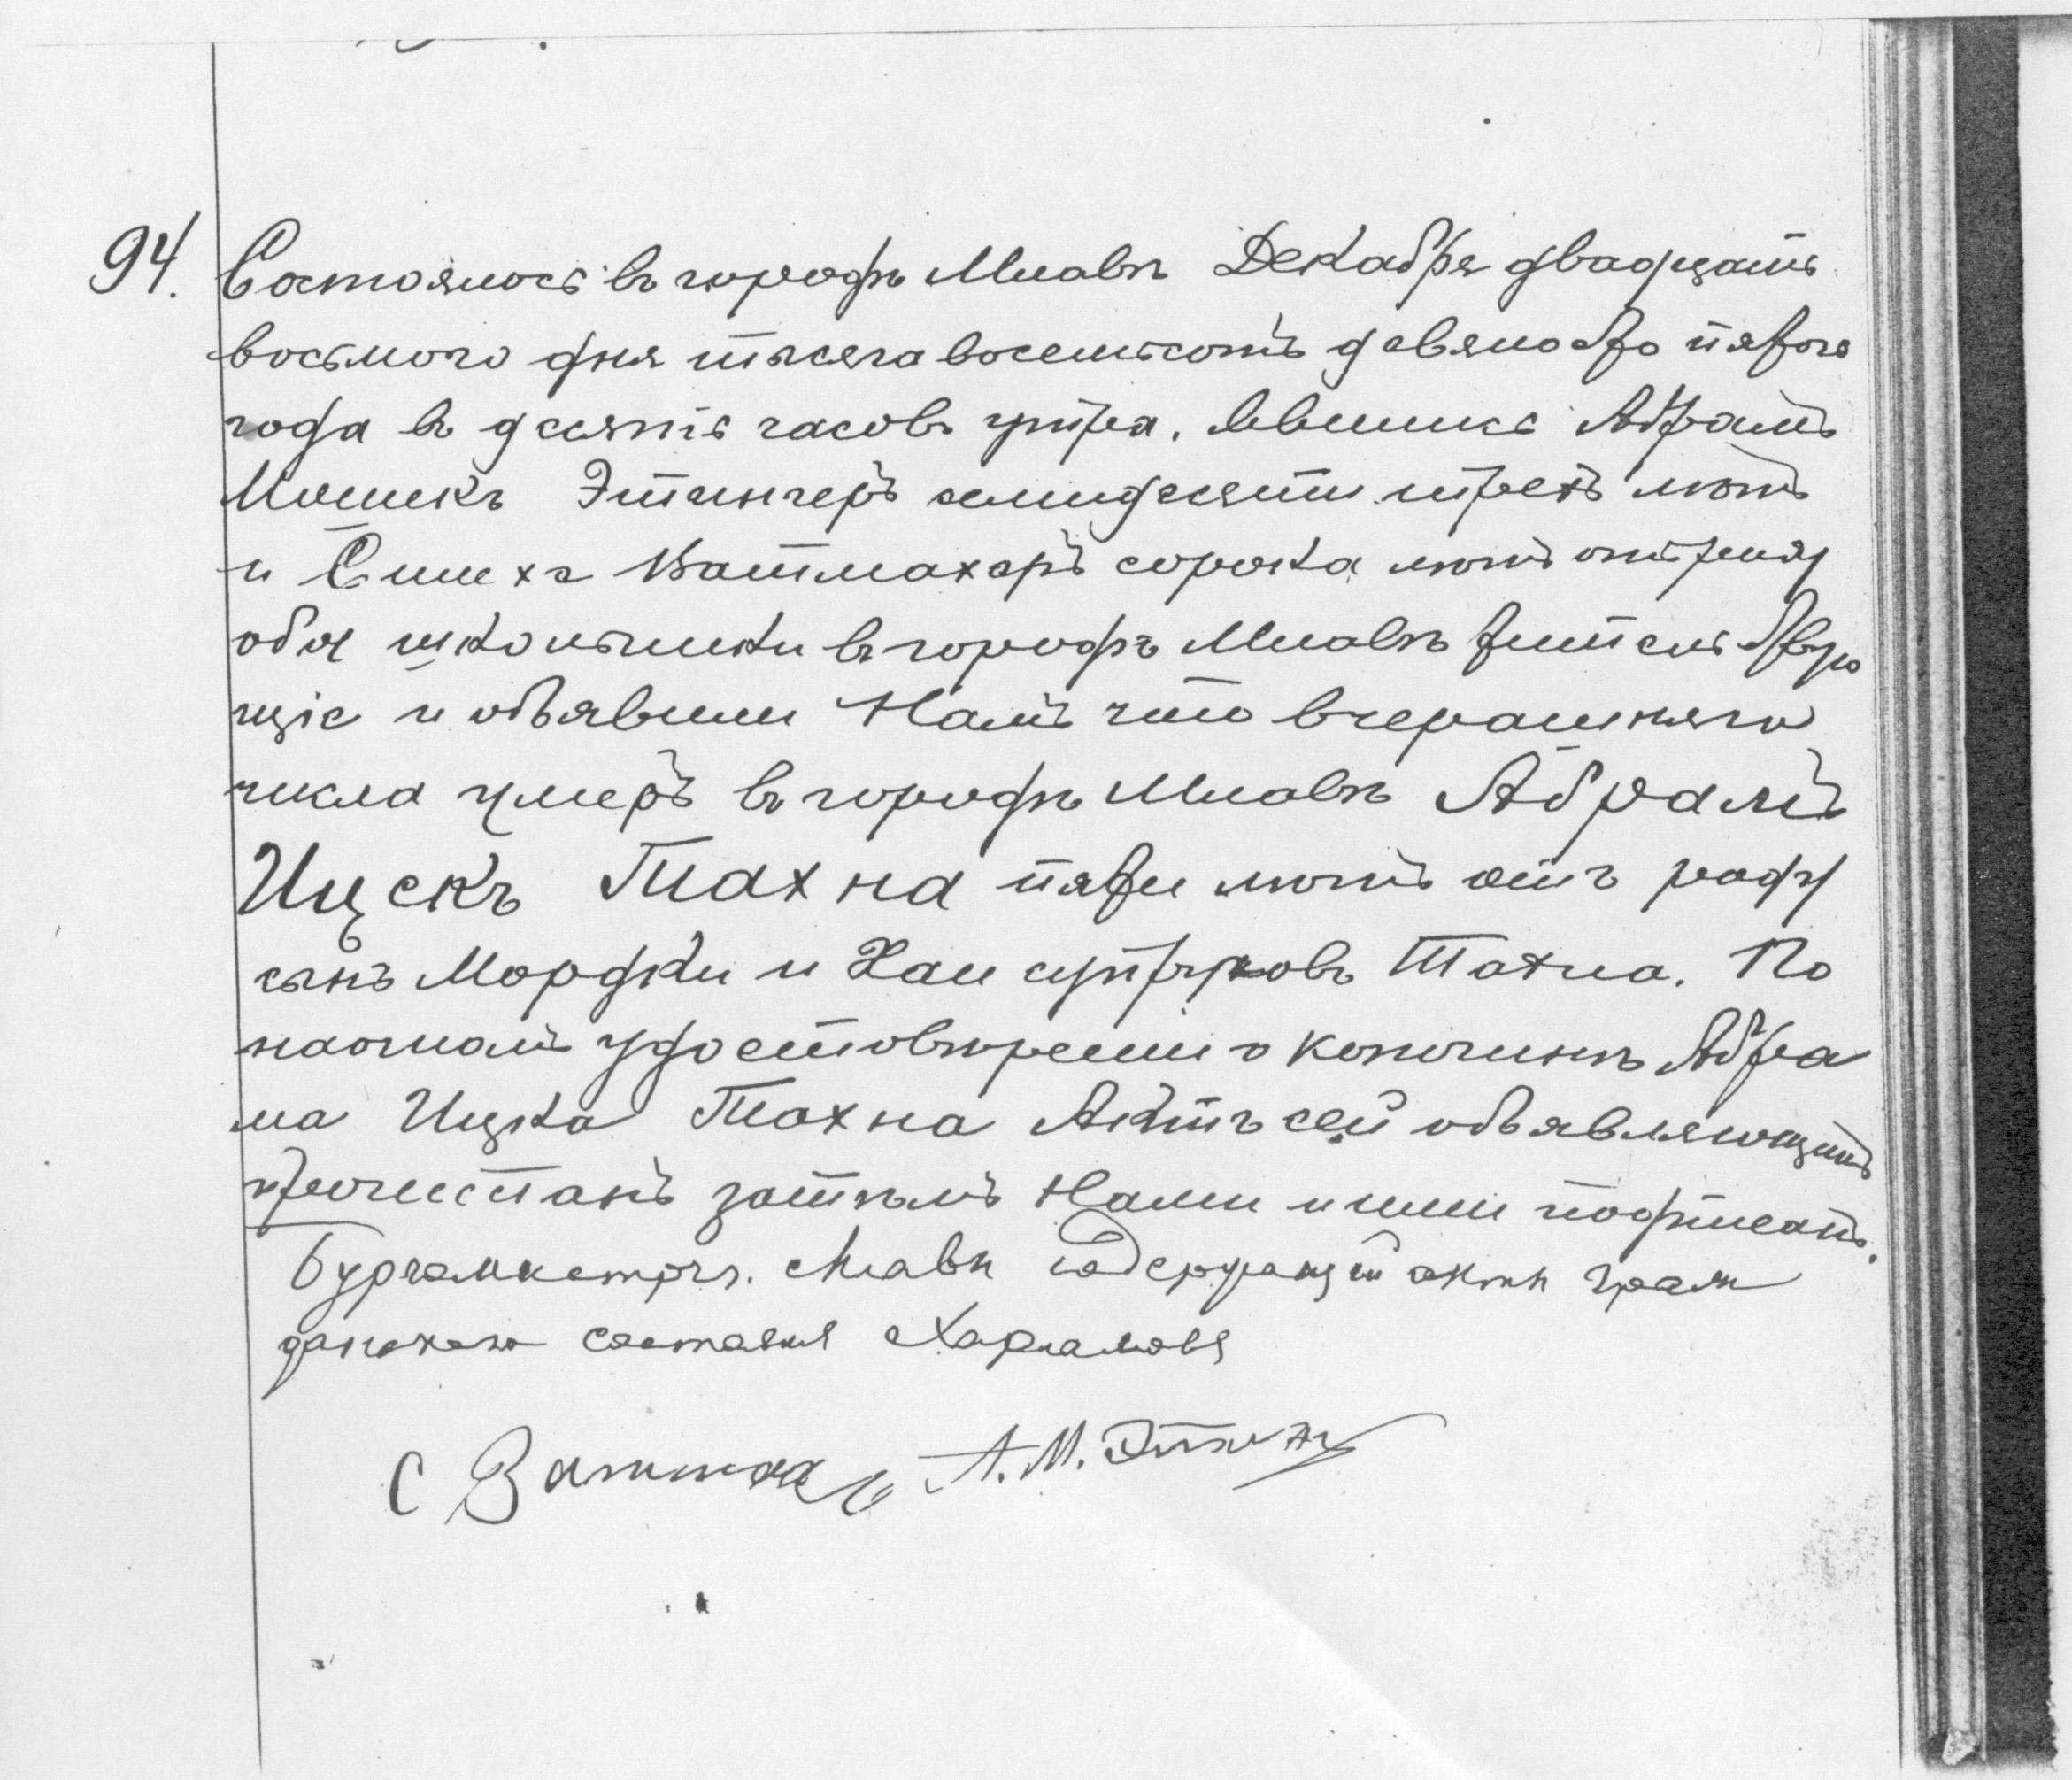 94. Состоялось въ городѣ Млавѣ Декабря двадцать
восьмого дня тысяча восемьсотъ девяносто пятого
года въ десять часовъ утра. Явились Абрамъ
Мошекъ Этингеръ семидесяти трехъ лѣтъ
и Симха Ватмахеръ сорока лѣтъ отъ роду
оба школьники въ городѣ Млавѣ жительствую
щіе и объявили Намъ что вчерашняго
числа умеръ въ городѣ Млавѣ Абрамъ
Ицекъ Тахна пяти лѣтъ отъ роду
сынъ Мордки и Хаи супруговъ Тахна. По
наочномъ удостовѣреніи о кончинѣ Абра
ма Ицка Тахна Актъ сей объявляющимъ
прочитанъ затѣмъ Нами и ими подписанъ.
Бургомистръ г. Млавы содержащій акты граж
данскаго состоянія Харламовъ
С Ватмахер А. М. Этинг